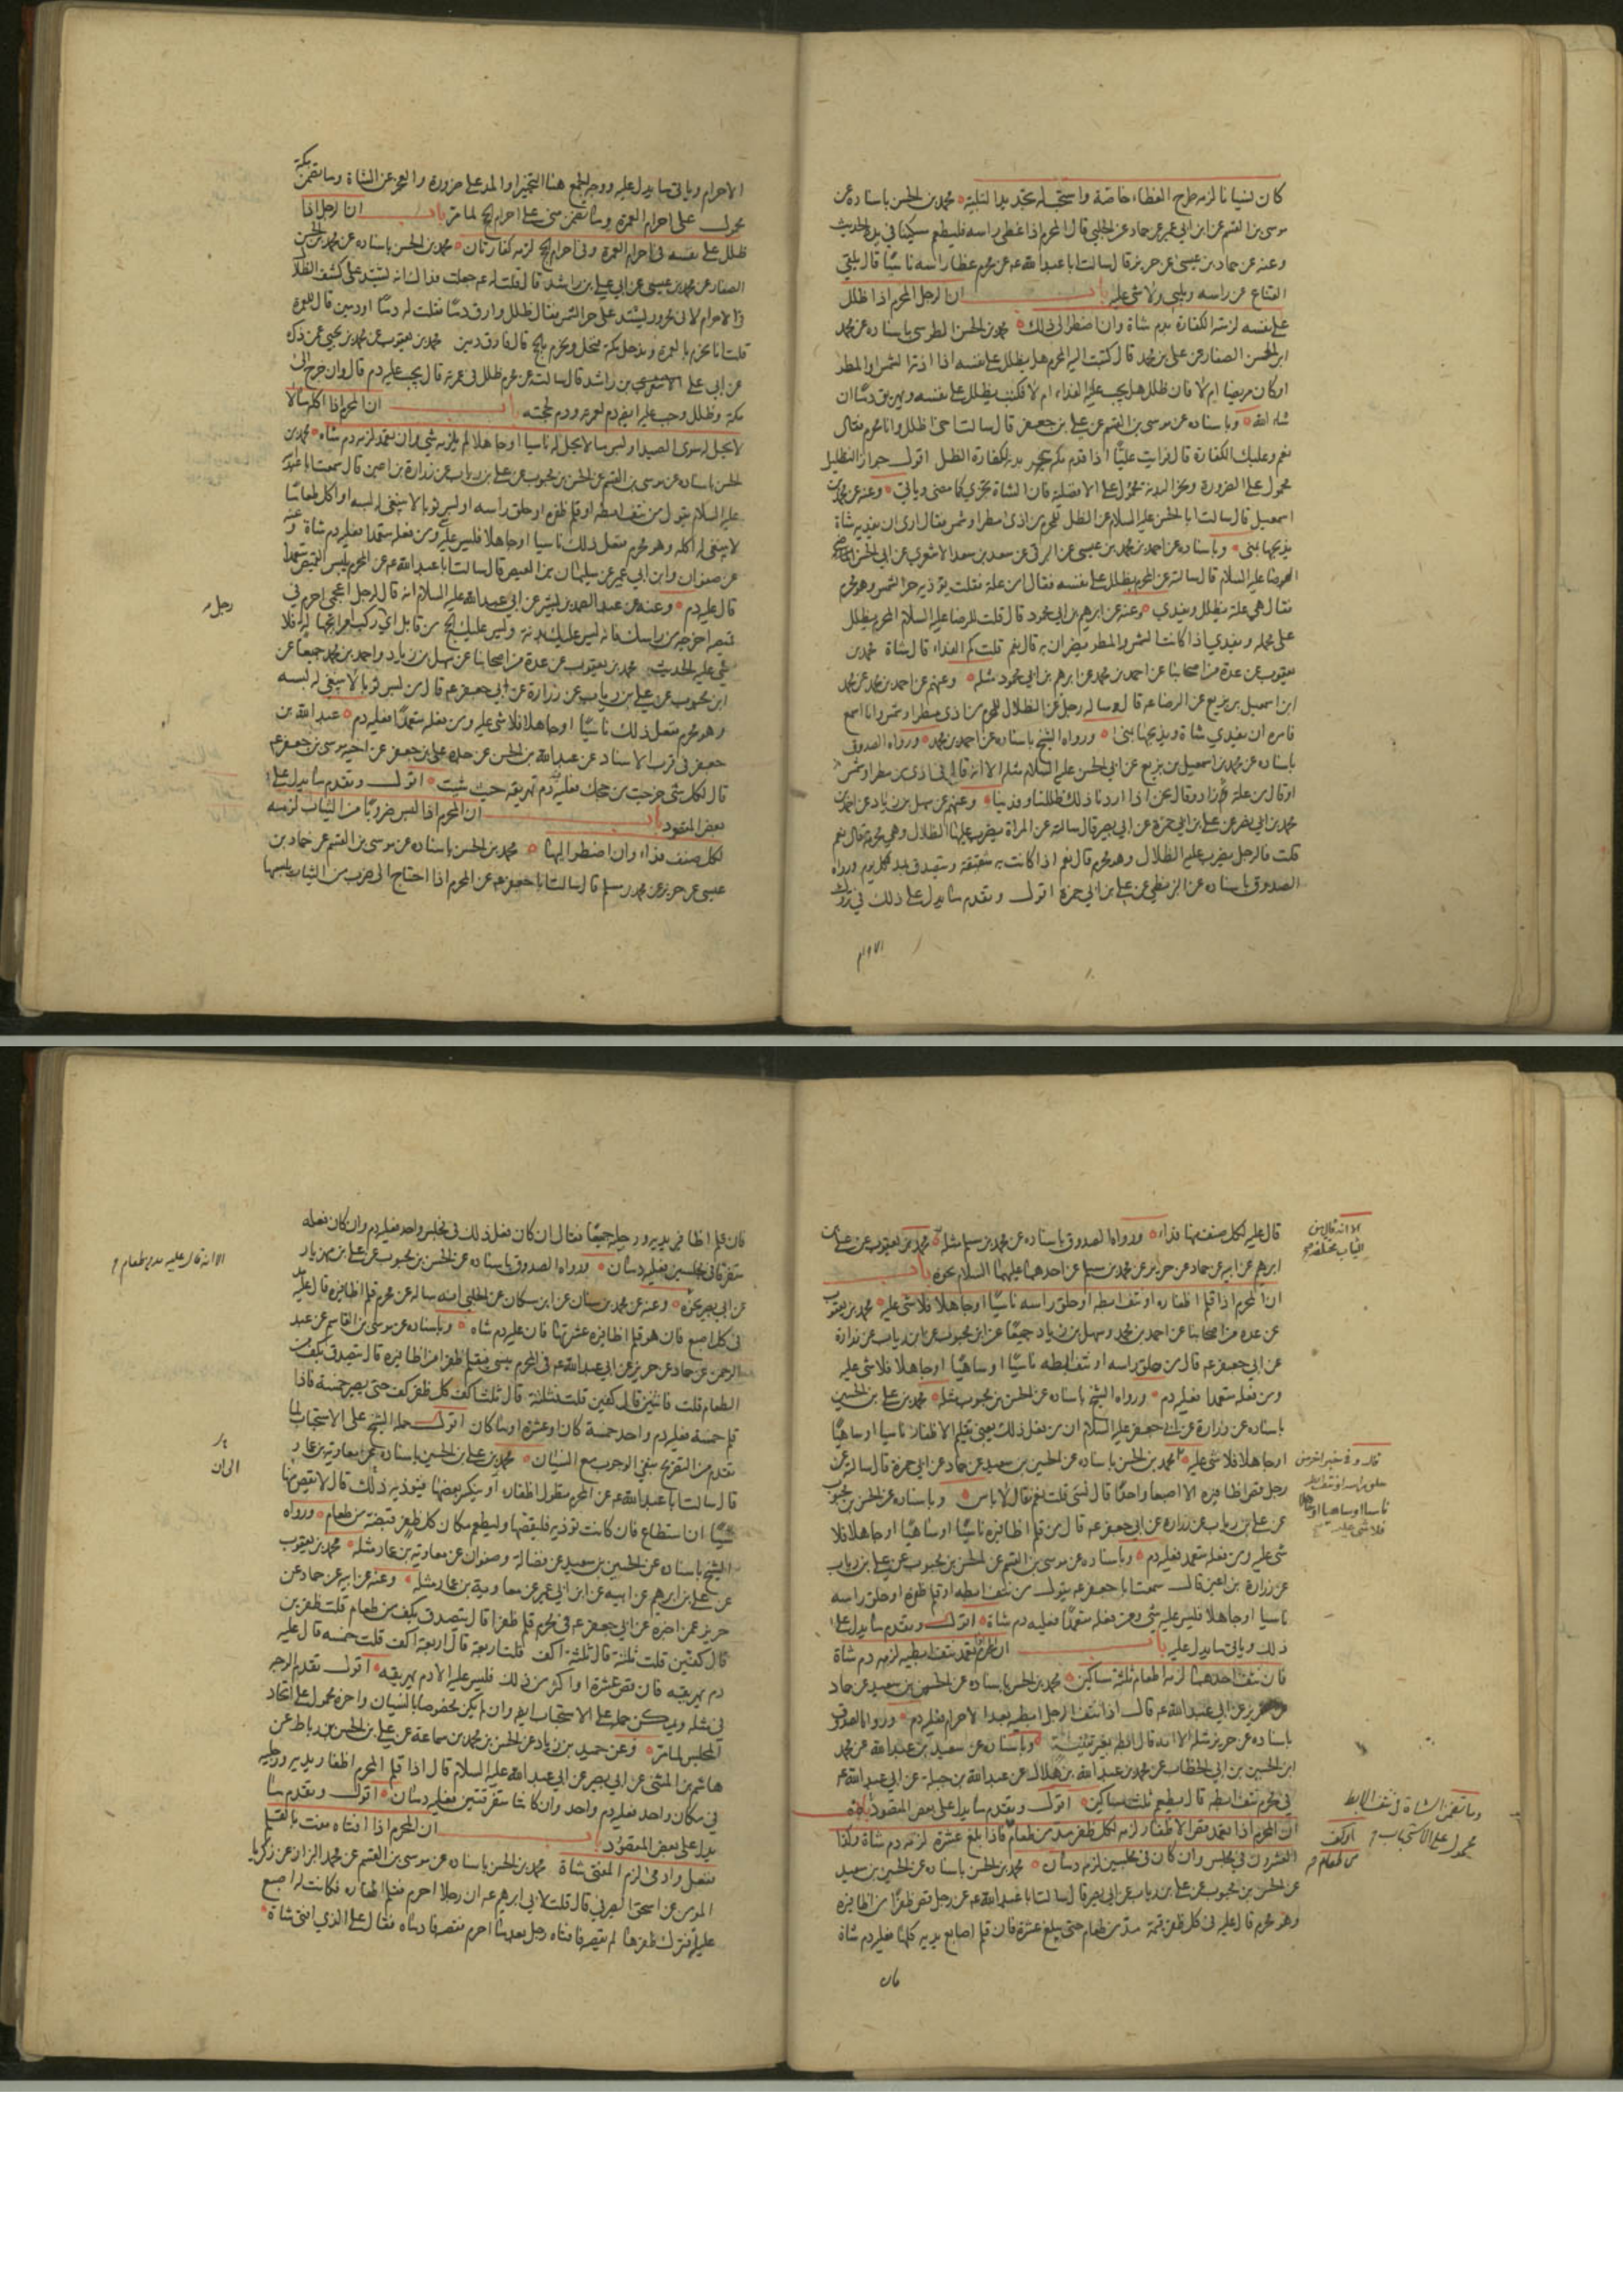 كان نسيانا لزمه طرح الغطاء خاصة واستحب له تجديد التلبية محمد بن الحسن باسناده عن
موسى بن القسم عن ابن ابي عمير عن حماد عن الحلبي قال المحرم اذا غطى راسه فليطعم مسكينا في يده الحديث
وعنه عن حماد بن عيسى عن حريز قال سالت ابا عبد الله عه عن محرم غطا راسه ناسيا قال يلقي
القناع عن راسه ويلبي ولا شي عليه باب ان الرجل المحرم اذا ظلل
على نفسه لزمته الكفارة بدم شاة وان اضطر الى ذلك محمد بن الحسن الطوسي باسناده عن محمد
ابن الحسن الصفار عن علي بن محمد قال كتبت اليه المحرم هل يظلل على نفسه اذا اذته الشمس والمطر
او كان مريضا ام لا فان ظلل هل يجب عليه الفداء ام لا فكتب يظلل على نفسه ويهريق دما ان
شاء الله وباسناده عن موسى بن القسم عن علي بن جعفر قال سالت اخي اظلل وانا محرم فقال
نعم وعليك الكفارة قال فرايت عليا اذا قدم مكة ينحر بدنة لكفارة الظل اقول جواز التظليل
محمول على الضرورة ونحر البدنة محمول على الافضلية فان الشاة تجزي كما مضى وياتي وعنه عن محمد بن
اسمعيل قال سالت ابا الحسن عليه السلام عن الظل للمحرم من اذى مطر او شمس فقال ارى ان يفديه شاة
يذبحها بمنى وباسناده عن احمد بن محمد بن عيسى عن البرقي عن سعد بن سعد الاشعري عن ابي الحسن
الرضا عليه السلام قال سالته عن المحرم يظلل على نفسه فقال امن علة فقلت يوذيه حر الشمس وهو محرم
فقال هي علة يظلل ويفدي وعنه عن ابرهيم بن ابي محمود قال قلت للرضا عليه السلام المحرم يظلل
على محمله ويفدي اذا كانت الشمس والمطر يضران به قال نعم قلت كم الفداء قال شاة محمد بن
يعقوب عن عدة من اصحابنا عن احمد بن محمد عن ابرهيم بن ابي محمود مثله وعنهم عن احمد بن محمد عن محمد
ابن اسمعيل بن بزيع عن الرضا عه قال وساله رجل عن الظلال للمحرم من اذى مطر او شمس وانا اسمع
فامره ان يفدي شاة ويذبحها بمنى ورواه الشيخ باسناده عن احمد بن محمد ورواه الصدوق
باسناده عن محمد بن اسمعيل بن بزيع عن ابي الحسن عليه السلام مثله الا انه قال في اذى من مطر او شمس
او قال من علة وزاد وقال نحن اذا اردنا ذلك ظللنا وفدينا وعنهم عن سهل بن زياد عن احمد بن
محمد بن ابي نصر عن علي بن ابي حمزة عن ابي بصير قال سالته عن المراة يضرب عليها الظلال وهي محرمة قال نعم
قلت فالرجل يضرب عليه الظلال وهو محرم قال نعم اذا كانت به شقيقة ويتصدق بمد لكل يوم ورواه
الصدوق باسناده عن البزنطي عن علي بن ابي حمزة اقول وتقدم ما يدل على ذلك في تروك
الاحرام
الاحرام وياتي ما يدل عليه ووجه الجمع هنا التخيير او المد على ضرورة والعجز عن الشاة وما تضمن
محمول على احرام العمرة وما تضمن منى على احرام الحج لما مر باب ان الرجل اذا
ظلل على نفسه في احرام العمرة وفي احرام الحج لزمه كفارتان محمد بن الحسن باسناده عن محمد بن الحسن
الصفار عن محمد بن عيسى عن ابي علي بن راشد قال قلت له عه جعلت فداك انه يشتد علي كشف الظلال
في الاحرام لاني محرور يشتد علي حر الشمس فقال ظلل وارق دما فقلت له دما او دمين قال للعمرة
قلت انا نحرم بالعمرة وندخل مكة فنحل ونحرم بالحج قال فارق دمين محمد بن يعقوب عن محمد بن يحيى عمن ذكره
عن ابي علي بن راشد قال سالته عن محرم ظلل في عمرته قال يجب عليه دم قال وان خرج الى
مكة وظلل وجب عليه ايضا دم لعمرته ودم لحجته باب ان المحرم اذا اكل ما لا
لا يحل له سوى الصيد او لبس ما لا يحل له ناسيا او جاهلا لم يلزمه شي وان تعمد لزمه دم شاه محمد بن
الحسن باسناده عن موسى بن القسم عن الحسن بن محبوب عن علي بن رياب عن زرارة بن اعين قال سمعت ابا جعفر
عليه السلام يقول من نتف ابطه او قلم ظفره او حلق راسه او لبس ثوبا لا ينبغي له لبسه او اكل طعاما
لا ينبغي له اكله وهو محرم ففعل ذلك ناسيا او جاهلا فليس عليه شي ومن فعله متعمدا فعليه دم شاة وعنه
عن صفوان وابن ابي عمير عن سليمان بن العيص قال سالت ابا عبد الله عه عن المحرم يلبس القميص متعمدا
قال عليه دم وعنه عن عبد الصمد بن بشير عن ابي عبد الله عليه السلام انه قال لرجل اعجمي احرم في
قميصه اخرجه من راسك فانه ليس عليك بدنة وليس عليك الحج من قابل اي رجل ركب امرا بجهالة فلا
شي عليه الحديث محمد بن يعقوب عن عدة من اصحابنا عن سهل بن زياد واحمد بن محمد جميعا عن
ابن محبوب عن علي بن رياب عن زرارة عن ابي جعفر عه قال من لبس ثوبا لا ينبغي له لبسه
وهو محرم ففعل ذلك ناسيا او جاهلا فلا شي عليه ومن فعله متعمدا فعليه دم عبد الله بن
جعفر في قرب الاسناد عن عبد الله بن الحسن عن جده علي بن جعفر عن اخيه موسى بن جعفر عه
قال لكل شي خرجت من حجك فعليه دم تهريقه حيث شئت اقول وتقدم ما يدل على
بعض المقصود باب ان المحرم اذا لبس ضروبا من الثياب لزمه
لكل صنف فداء وان اضطر اليها محمد بن الحسن باسناده عن موسى بن القسم عن حماد بن
عيسى عن حريز عن محمد بن مسلم قال سالت ابا جعفر عه عن المحرم اذا احتاج الى ضرب من الثياب يلبسها
رجل
قال عليه لكل صنف منها فداء ورواه الصدوق باسناده عن محمد بن مسلم مثله محمد بن يعقوب عن علي بن
ابرهيم عن ابيه عن حماد عن حريز عن محمد بن مسلم عن احدهما عليهما السلام نحوه باب
ان المحرم اذا قلم اظفاره او نتف ابطه او حلق راسه ناسيا او جاهلا فلا شي عليه محمد بن يعقوب
عن عدة من اصحابنا عن احمد بن محمد وسهل بن زياد جميعا عن ابن محبوب عن ابن رياب عن زرارة
عن ابي جعفر عه قال من حلق راسه او نتف ابطه ناسيا او ساهيا او جاهلا فلا شي عليه
ومن فعله متعمدا فعليه دم ورواه الشيخ باسناده عن الحسن بن محبوب مثله محمد بن علي بن الحسين
باسناده عن زرارة عن ابي جعفر عليه السلام ان من فعل ذلك يعني تقليم الاظفار ناسيا او ساهيا
او جاهلا فلا شي عليه محمد بن الحسن باسناده عن الحسين بن سعيد عن حماد عن ابي حمزة قال سالته عن
رجل قص اظافيره الا اصبعا واحدا قال نسي قلت نعم قال لا باس وباسناده عن الحسن بن محبوب
عن علي بن رياب عن زرارة عن ابي جعفر عه قال من قلم اظافيره ناسيا او ساهيا او جاهلا فلا
شي عليه ومن فعله متعمدا فعليه دم وباسناده عن موسى بن القسم عن الحسن بن محبوب عن علي بن رياب
عن زرارة بن اعين قال سمعت ابا جعفر عه يقول من نتف ابطه او قلم ظفره او حلق راسه
ناسيا او جاهلا فليس عليه شي ومن فعله متعمدا فعليه دم شاة اقول وتقدم ما يدل على
ذلك وياتي ما يدل عليه باب ان المحرم اذا تعمد نتف ابطيه لزمه دم شاة
فان نتف احدهما لزمه اطعام ثلثة مساكين محمد بن الحسن باسناده عن الحسين بن سعيد عن حماد
عن حريز عن ابي عبد الله عه قال اذا نتف الرجل ابطيه بعد الاحرام فعليه دم ورواه الصدوق
باسناده عن حريز مثله الا انه قال ابطه بغير تثنية وباسناده عن سعد بن عبد الله عن محمد
ابن الحسين بن ابي الخطاب عن محمد بن عبد الله بن هلال عن عبد الله بن جبلة عن ابي عبد الله عه
في محرم نتف ابطه قال يطعم ثلثة مساكين اقول وتقدم ما يدل على بعض المقصود باب
ان المحرم اذا تعمد قص الاظفار لزمه لكل ظفر مد من طعام فاذا بلغ عشرة لزمه دم شاة وكذا
العشرون في مجلس وان كان في مجلسين لزمه دمان محمد بن الحسن باسناده عن الحسين بن سعيد
عن الحسن بن محبوب عن علي بن رياب عن ابي بصير قال سالت ابا عبد الله عه عن رجل قص ظفرا من اظافيره
وهو محرم قال عليه في كل ظفر قيمة مد من طعام حتى يبلغ عشرة فان قلم اصابع يديه كلها فعليه دم شاة
فان
الا انه قال من
الثياب مختلفة
قال وفي خبر اخر من
حلق راسه او نتف ابطه
ناسيا او ساهيا او جاهلا
فلا شي عليه
وما تضمن الشاة في نتف الابط
محمول على الاستحباب
او كف
من طعام
فان قلم اظافير يديه ورجليه جميعا فقال ان كان فعل ذلك في مجلس واحد فعليه دم وان كان فعله
متفرقا في مجلسين فعليه دمان ورواه الصدوق باسناده عن الحسن بن محبوب عن علي بن مهزيار
عن ابي بصير نحوه وعنه عن محمد بن سنان عن ابن مسكان عن الحلبي انه ساله عن محرم قلم اظافيره قال عليه مد
في كل اصبع فان هو قلم اظافيره عشرتها فان عليه دم شاه وباسناده عن موسى بن القاسم عن عبد
الرحمن عن حماد عن حريز عن ابي عبد الله عه في المحرم ينسى فيقلم ظفرا من اظافيره قال يتصدق بكف من
الطعام قلت فاثنين قال كفين قلت فثلثة قال ثلث اكف كل ظفر كف حتى يصير خمسة فاذا
قلم خمسة فعليه دم واحد خمسة كان او عشرة او ما كان اقول حمله الشيخ على الاستحباب لما
تقدم من التصريح بنفي الوجوب مع النسيان محمد بن علي بن الحسين باسناده عن معاوية بن عمار
قال سالت ابا عبد الله عه عن المحرم تطول اظفاره او ينكسر بعضها فيوذيه ذلك قال لا يقص منها
شيا ان استطاع فان كانت توذيه فليقصها وليطعم مكان كل ظفر قبضة من طعام ورواه
الشيخ باسناده عن الحسين بن سعيد عن فضالة وصفوان عن معاوية بن عمار مثله محمد بن يعقوب
عن علي بن ابرهيم عن ابيه عن ابن ابي عمير عن معاوية بن عمار مثله وعنه عن ابيه عن حماد عن
حريز عمن اخبره عن ابي جعفر عه في محرم قلم ظفرا قال يتصدق بكف من طعام قلت ظفرين
قال كفين قلت ثلثة قال ثلثة اكف قلت اربعة قال اربعة اكف قلت خمسه قال عليه
دم يهريقه فان قص عشرة او اكثر من ذلك فليس عليه الا دم يهريقه اقول تقدم الوجه
في مثله ويمكن حمله على الاستحباب ايضا وان لم يكن مخصوصا بالنسيان واخره محمول على اتحاد
المجلس لما مر وعن حميد بن زياد عن الحسن بن محمد بن سماعة عن علي بن الحسن بن رباط عن
هاشم بن المثنى عن ابي بصير عن ابي عبد الله عليه السلام قال اذا قلم المحرم اظفار يديه ورجليه
في مكان واحد فعليه دم واحد وان كانتا متفرقتين فعليه دمان اقول وتقدم ما
يدل على بعض المقصود باب ان المحرم اذا افتاه مفت بالقلم
ففعل وادمى لزم المفتي شاة محمد بن الحسن باسناده عن موسى بن القسم عن محمد البزاز عن زكريا
المومن عن اسحق الصيرفي قال قلت لابي ابرهيم عه ان رجلا احرم فقلم اظفاره فكانت له اصبع
عليلة فترك ظفرها لم يقصه فافتاه رجل بعد ما احرم فقصه فادماه فقال على الذي افتى شاة
الا انه قال عليه مد من طعام
الى ان